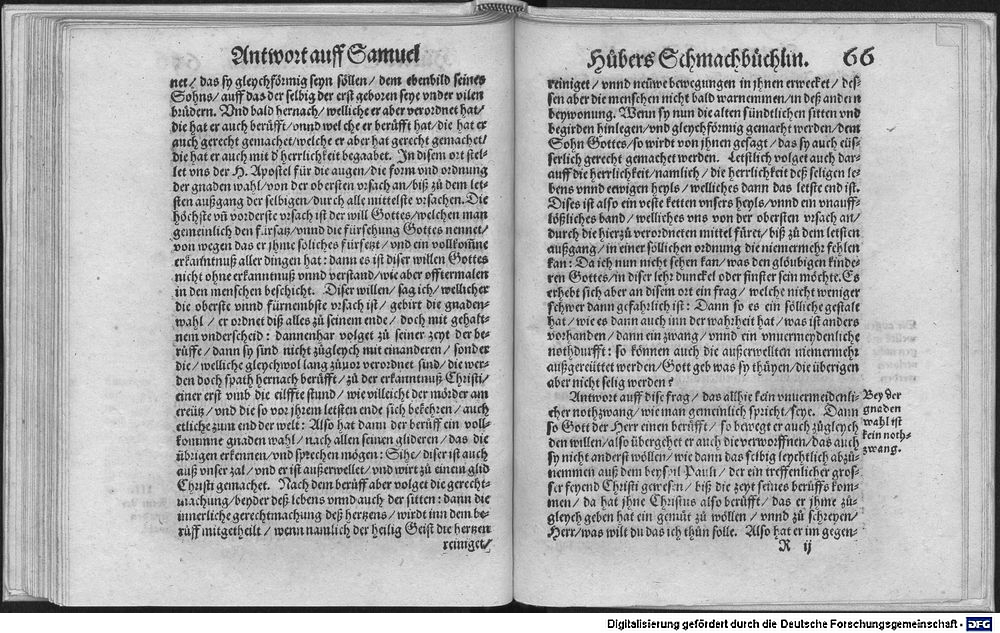 Antwort auff Samuel
net / das sy gleychförmig seyn söllen / dem ebenbild seines
Sohns / auff das der selbig der erst geboren seye vnder vilen
brüdern. Vnd bald hernach / welliche er aber verordnet hat /
die hat er auch berüfft / vnnd welche er berüfft hat / die hat er
auch gerecht gemachet / welche er aber hat gerecht gemachet /
die hat er auch mit d' herrlichkeit begaabet. In disem ort stel-
let vns der H. Apostel für die augen / die form vnd ordnung
der gnaden wahl / von der obersten vrsach an / biß zů dem let-
sten außgang der selbigen / durch alle mittelste vrsachen. Die
höchste vñ vorderste vrsach ist der will Gottes / welchen man
gemeinlich den fürsatz / vnnd die fürsehung Gottes nennet /
von wegen das er jhme söliches fürsetzt / vnd ein vollkom̃ne
erkanntnuß aller dingen hat: dann es ist diser willen Gottes
nicht ohne erkanntnuß vnnd verstand / wie aber offtermalen
in den menschen beschicht. Diser willen / sag ich / wellicher
die oberste vnnd fürnembste vrsach ist / gebirt die gnaden-
wahl / er ordnet diß alles zů seinem ende / doch mit gehalt-
nem vnderscheid: dannenhar volget zů seiner zeyt der be-
rüffe / dann sy sind nicht zůgleych mit einanderen / sonder
die / welliche gleychwol lang zůuor verordnet sind / die wer-
den doch spath hernach berüfft / zů der erkanntnuß Christi /
einer erst vmb die eilffte stund / wie villeicht der mörder am
creütz / vnd die so vor jhrem letsten ende sich bekehren / auch
etliche zum end der welt: Also hat dann der berüff ein voll-
komne gnaden wahl / nach allen seinen glideren / das die
übrigen erkennen / vnd sprechen mögen: Sihe / diser ist auch
auß vnser zal / vnd er ist außerwellet / vnd wirt zů einem glid
Christi gemachet. Nach dem berüff aber volget die gerecht-
machung / beyder deß lebens vnnd auch der sitten: dann die
innerliche gerechtmachung deß hertzens / wirdt inn dem be-
rüff mitgetheilt / wenn namlich der heilig Geist die hertzen
reiniget /
Hůbers Schmachbüchlin. 66
reiniget / vnnd neüwe bewegungen in jhnen erwecket / des-
sen aber die menschen nicht bald warnemmen / in deß andern
beywonung. Wenn sy nun die alten sündtlichen sitten vnd
begirden hinlegen / vnd gleychförmig gemacht werden / dem
Sohn Gottes / so wirdt von jhnen gesagt / das sy auch eüs-
serlich gerecht gemachet werden. Letstlich volget auch dar-
auff die herrlichkeit / namlich / die herrlichkeit deß seligen le-
bens vnnd eewigen heyls / welliches dann das letste end ist.
Dises ist also ein veste ketten vnsers heyls / vnnd ein vnauff-
lößliches band / welliches vns von der obersten vrsach an /
durch die hierzů verordneten mittel füret / biß zů dem letsten
außgang / in einer söllichen ordnung die niemermehr fehlen
kan: Da ich nun nicht sehen kan / was den glöubigen kinde-
ren Gottes / in diser lehr dunckel oder finster sein möchte. Es
erhebt sich aber an disem ort ein frag / welche nicht weniger
schwer dann gefahrlich ist: Dann so es ein sölliche gestalt
hat / wie es dann auch inn der wahrheit hat / was ist anders
vorhanden / dann ein zwang / vnnd ein vnuermeydenliche
nothdurfft: so können auch die außerwellten niemermehr
außgereüttet werden / Gott geb was sy thüyen / die überigen
aber nicht selig werden?
Antwort auff dise frag / das allhie kein vnuermeidenli-
cher nothzwang / wie man gemeinlich spricht / seye. Dann
so Gott der Herr einen berüfft / so bewegt er auch zůgleych
den willen / also übergehet er auch die verworffnen / das auch
sy nicht anderst wöllen / wie dann das selbig leychtlich abzů-
nemmen auß dem beyspil Pauli / der ein treffenlicher gros-
ser feyend Christi gewesen / biß die zeyt seines berüffs kom-
men / da hat jhne Christus also berüfft / das er jhme zů-
gleych geben hat ein gemüt zů wöllen / vnnd zů schreyen /
Herr / was wilt du das ich thůn solle. Also hat er im gegen-
R ij
Bey der
gnaden
wahl ist
kein noth-
zwang.
Digitalisierung gefördert durch die Deutsche Forschungsgemeinschaft - DFG